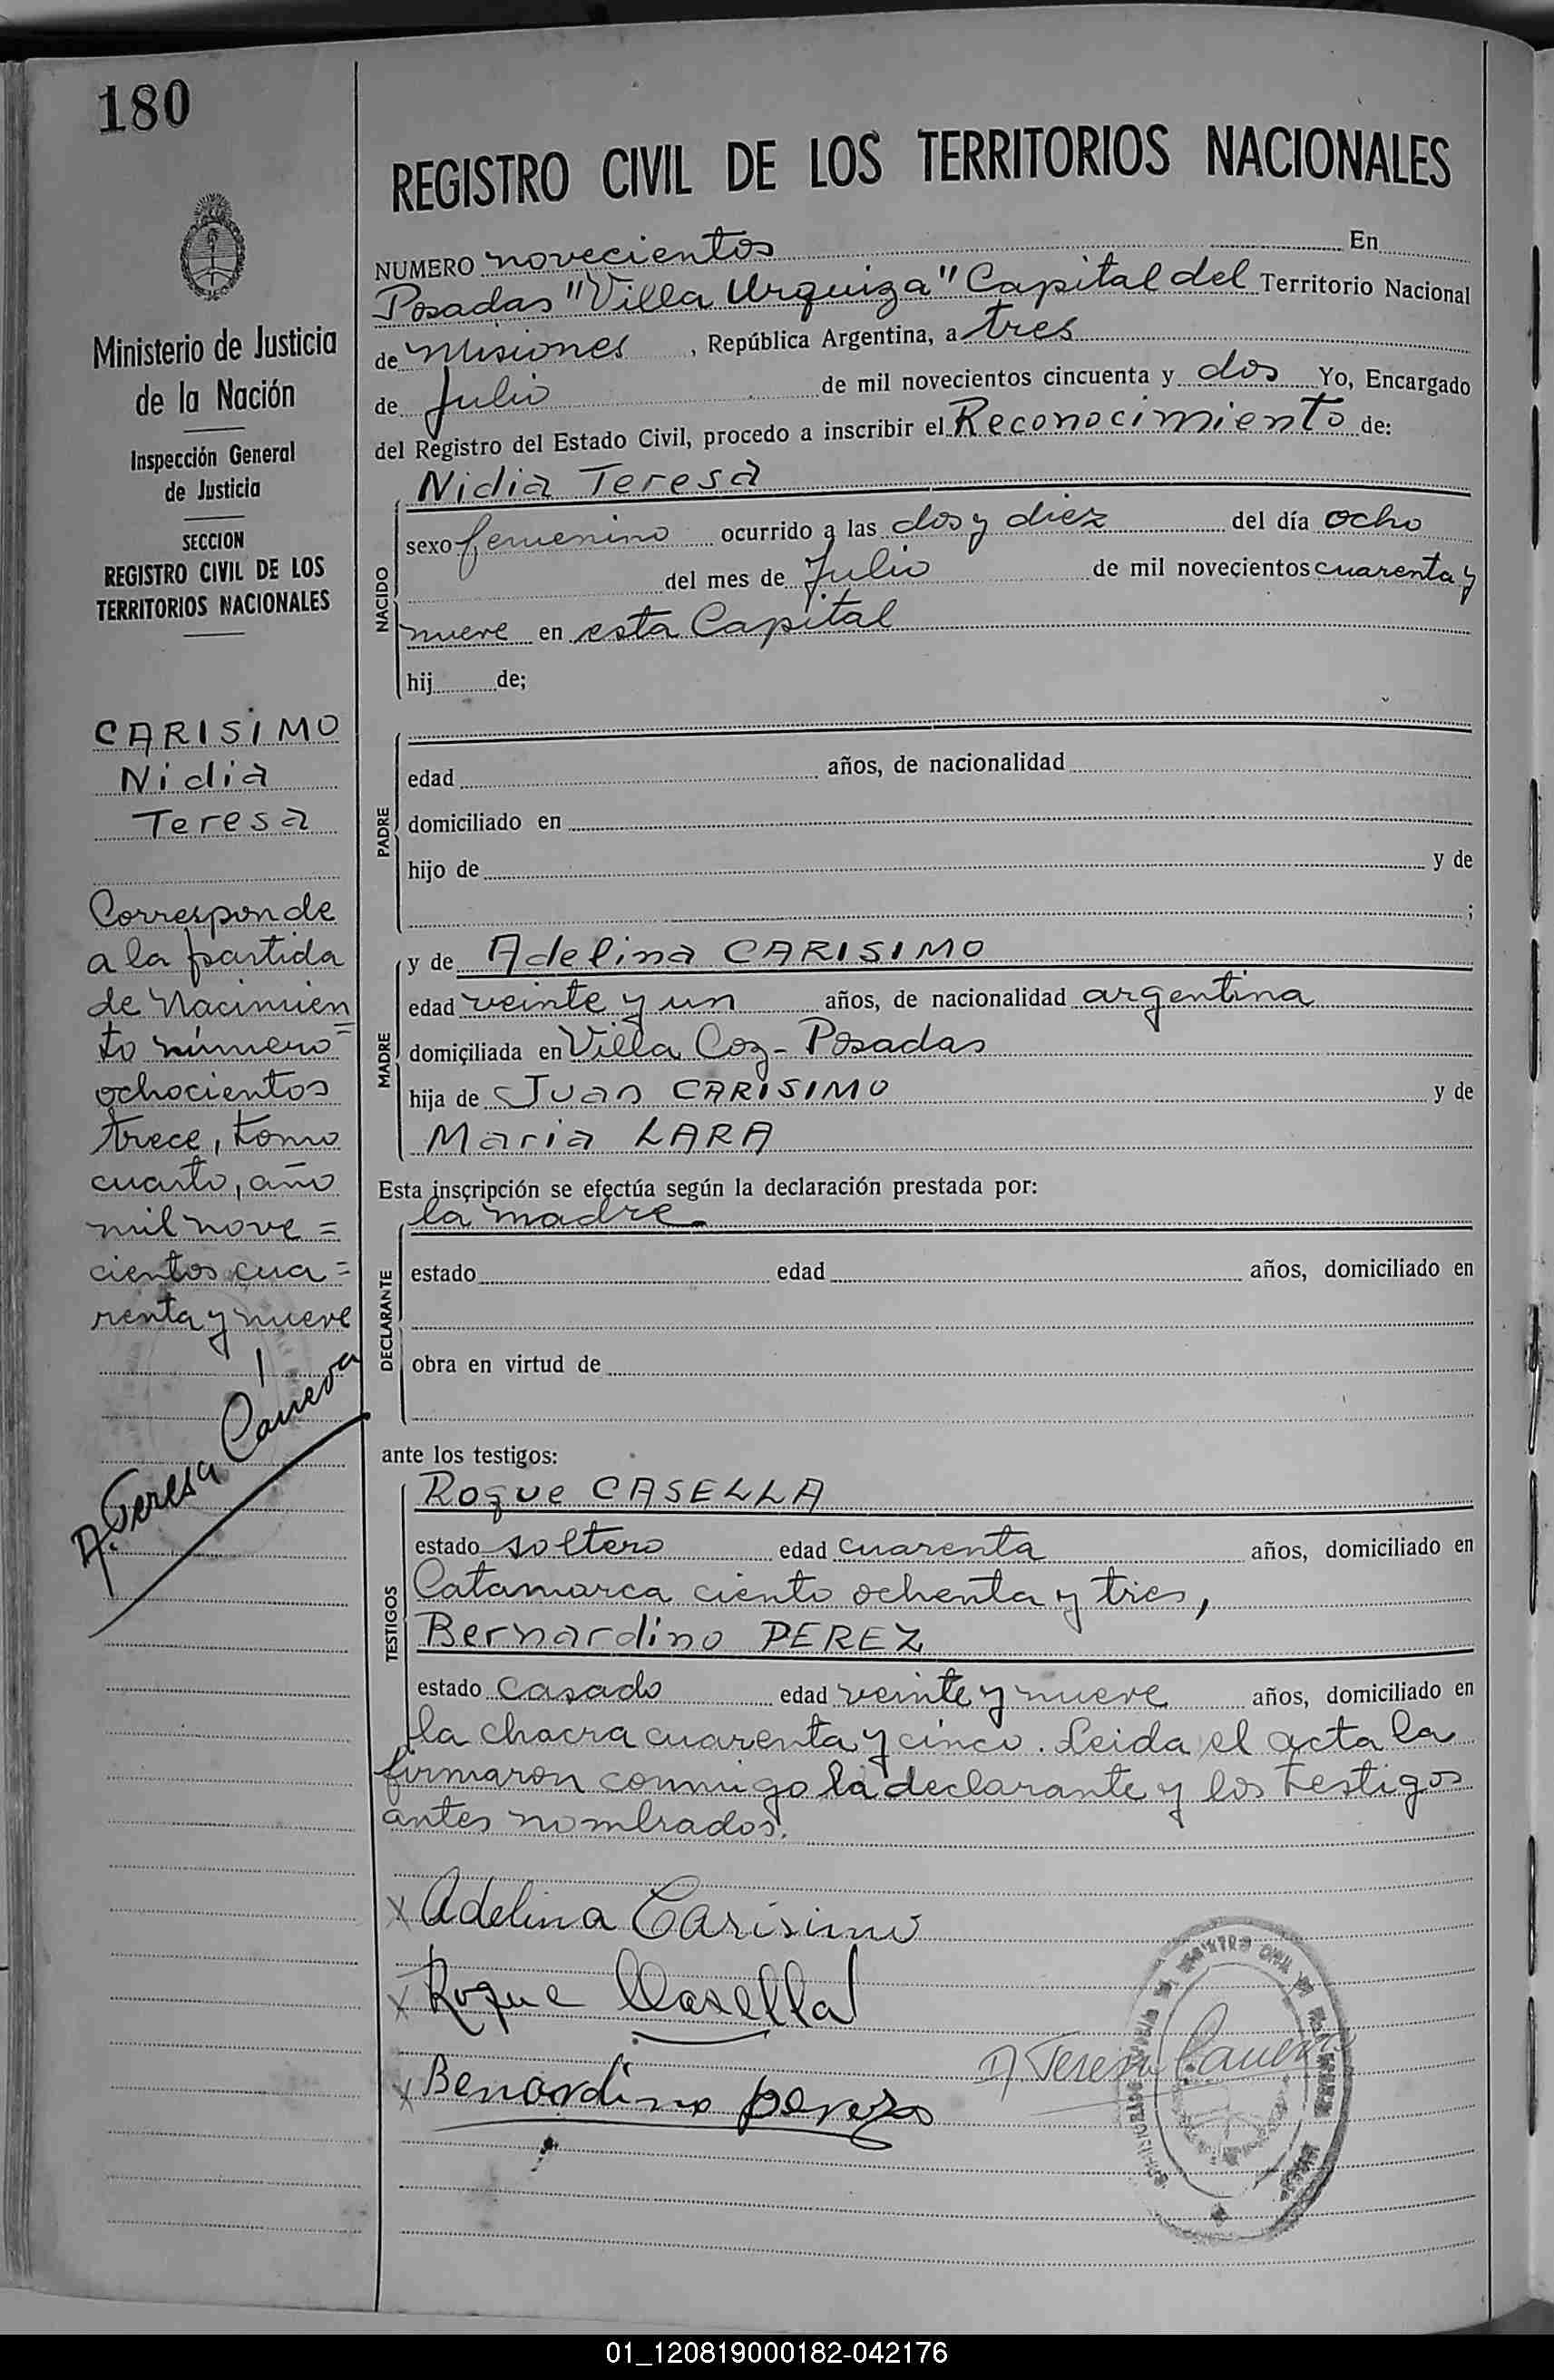 180
REGISTRO CIVIL DE LOS TERRITORIOS NACIONALES
Ministerio de Justicia
de la Nación
Inspección General
de Justicia
SECCION
REGISTRO CIVIL DE LOS
TERRITORIOS NACIONALES
CARISIMO
Nidia
Teresa
Corresponde
a la partida
de Nacimien
to número
ochocientos
trece, tomo
cuarto, año
mil nove=
cientos cua=
renta y nueve
A. Teresa Caneva
NUMERO novecientos En
Posadas "Villa Urquiza" Capital del Territorio Nacional
de Misiones, República Argentina, a tres
de Julio de mil novecientos cincuenta y dos Yo, Encargado
del Registro del Estado Civil, procedo a inscribir el Reconocimiento de:
NACIDO
Nidia Teresa
sexo femenino ocurrido a las dos y diez del día ocho
del mes de Julio de mil novecientos cuarenta y
nueve en esta Capital
hij de;
PADRE
edad años, de nacionalidad
domiciliado en
hijo de y de
;
MADRE
y de Adelina CARISIMO
edad veinte y un años, de nacionalidad argentina
domiciliada en Villa Coz - Posadas
hija de Juan CARISIMO y de
Maria LARA
Esta inscripción se efectúa según la declaración prestada por:
DECLARANTE
la madre
estado edad años, domiciliado en
obra en virtud de
ante los testigos:
TESTIGOS
Roque CASELLA
estado soltero edad cuarenta años, domiciliado en
Catamarca ciento ochenta y tres,
Bernardino PEREZ
estado casado edad veinte y nueve años, domiciliado en
la chacra cuarenta y cinco. Leida el acta la
firmaron conmigo la declarante y los testigos
antes nombrados.
x Adelina Carisimo
x Roque Casella
x Benardino perez
A Teresa Caneva
01_120819000182-042176